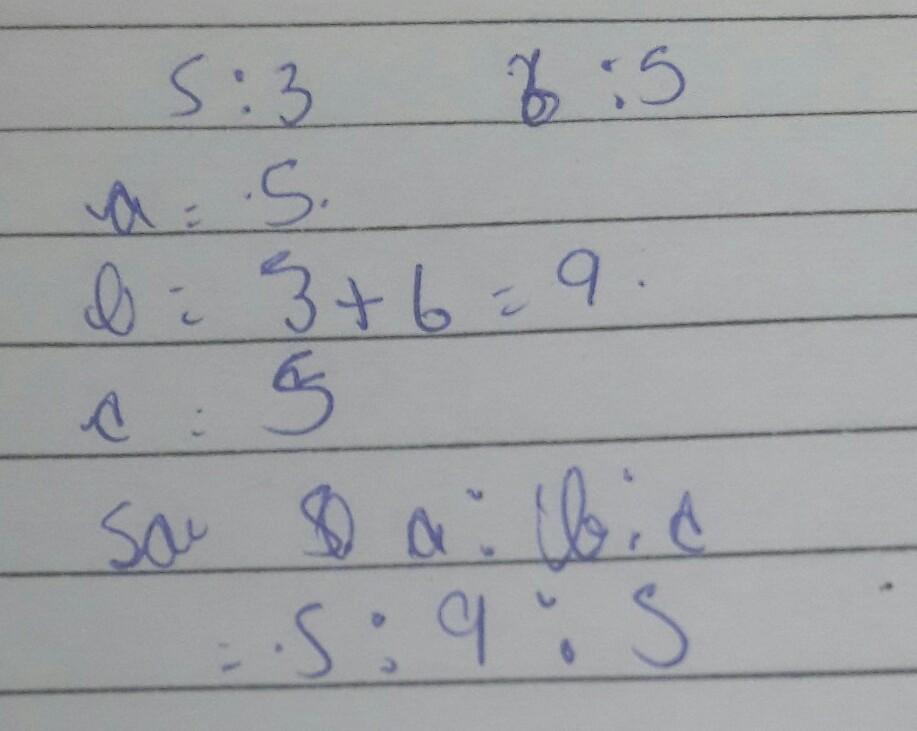 5:3 6:5
a = 5.
b = 3+6 = 9.
c = 5
So a:b:c
= 5:9:5